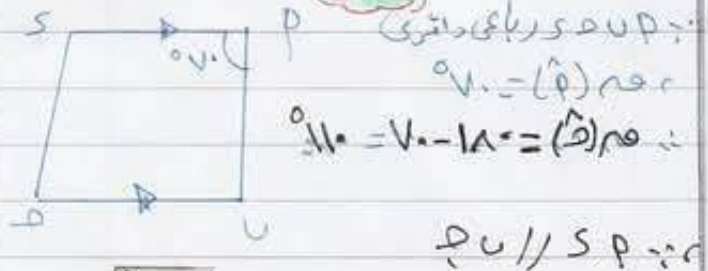 ∵ م ب ح د رباعي دائري
، ∵ ق(م̂) = ٧٠°
∴ ق(ح̂) = ١٨٠ - ٧٠ = ١١٠°
، ∵ م د // ب ح
د م
٧٠°
ح ب